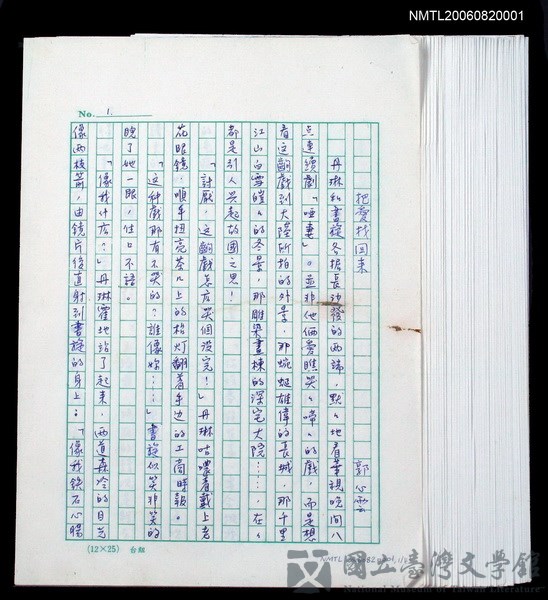 NMTL20060820001
No. 1
把愛找回來
郭心雲
丹琳和書旋各據長沙發的兩端,默々地看著華視晚間八
點連續劇「啞妻」。並非他倆愛瞧哭々啼々的戲,而是想
看這齣戲到大陸所拍的外景。那蜿蜒雄偉的長城,那千里
江山白雪皚々的冬景,那雕梁畫棟的深宅大院……,在々
都是引人興起故國之思!
「討厭,這齣戲怎麼哭個沒完!」丹琳咕噥着戴上老
花眼鏡,順手扭亮茶几上的枱灯翻着手边的工商時報。
「这种戲那有不哭的?誰像妳……」書旋似笑非笑的
睨了她一眼,住口不語。
「像我什麼?」丹琳霍地站了起來,兩道森冷的目光
像兩枝箭,由鏡片後直射到書旋的身上:「像我鐵石心腸
(12×25)
國立臺灣文學館
National Museum of Taiwan Literature